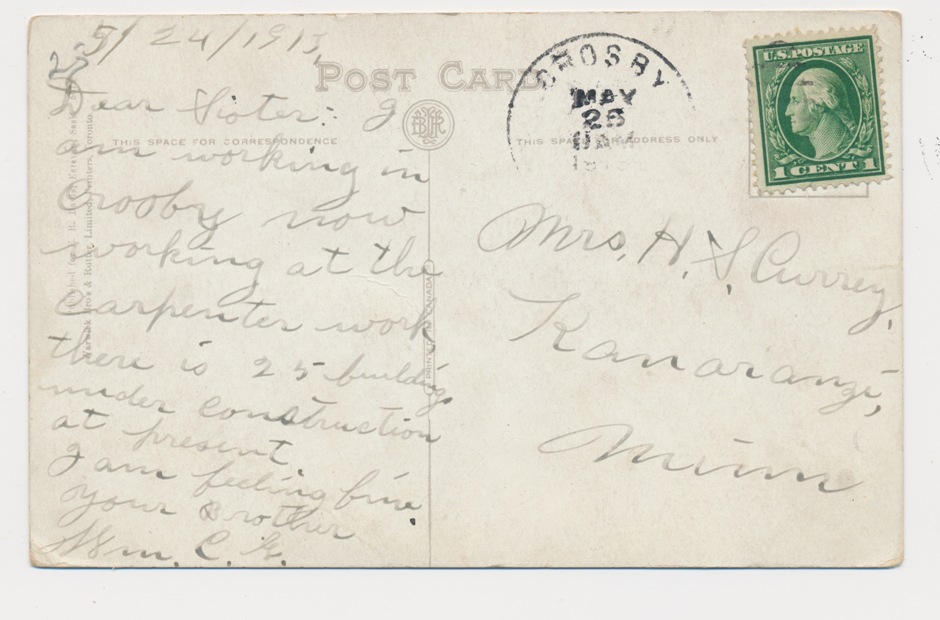 5/24/1913
POST CARD
CROSBY
MAY
25
U.S. POSTAGE
1 CENT 1
THIS SPACE FOR CORRESPONDENCE
THIS SPACE FOR ADDRESS ONLY
Dear Sister: I
am working in
Crosby now
working at the
Carpenter work
there is 25 buildings
under construction
at present.
I am feeling fine
your Brother
Wm. C. G.
Mrs. H. S. Currey,
Kanaranzi,
Minn
PRINTED IN CANADA
Warwick Bro's & Rutter, Limited, Printers, Toronto.